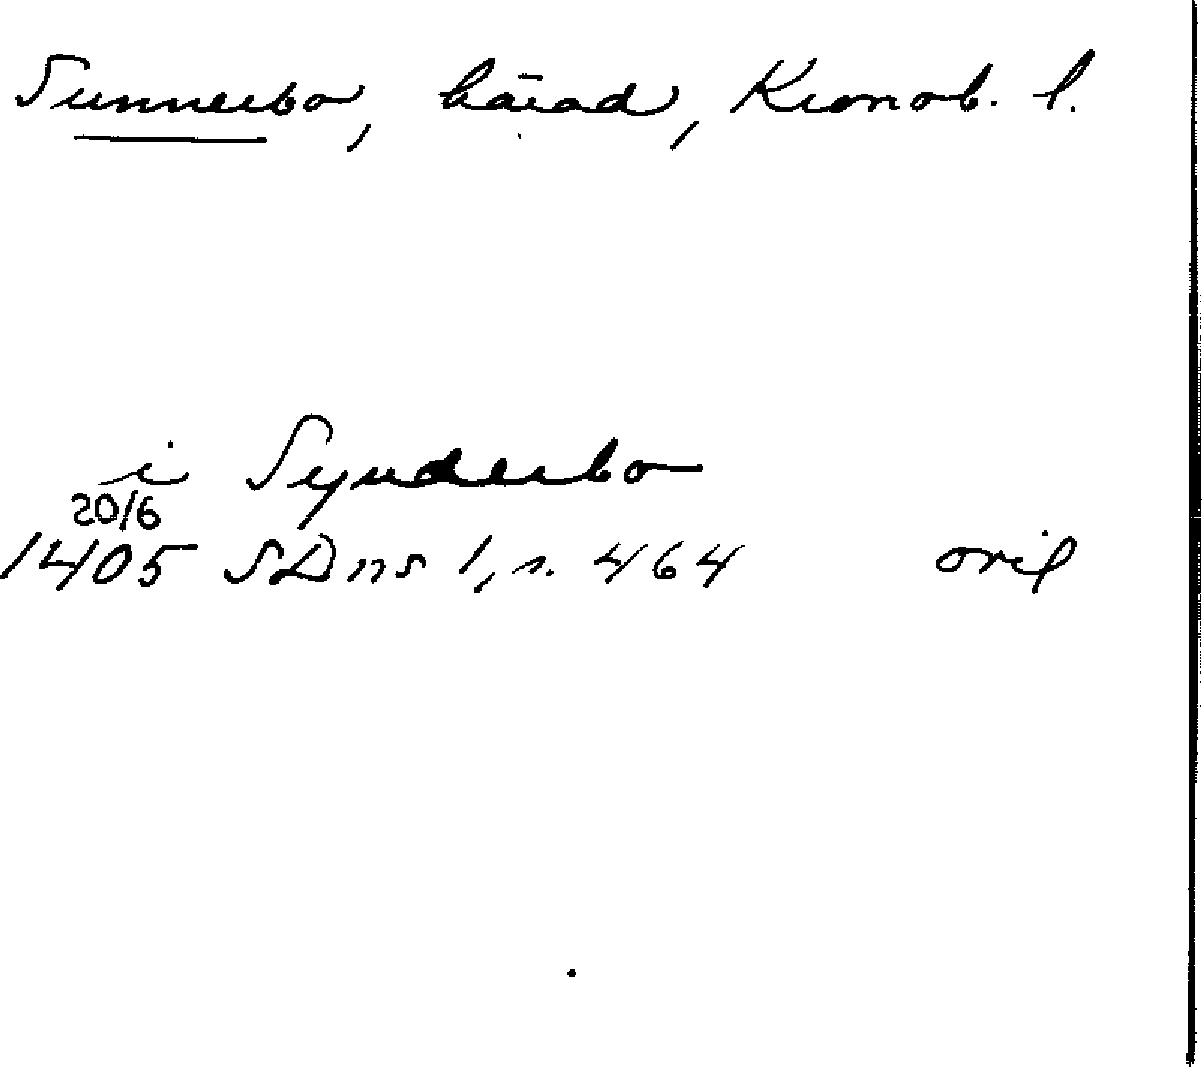 Sunnerbo, härad, Kronob. l.
i Synderbo
20/6
1405 SDns 1, s. 464 orig